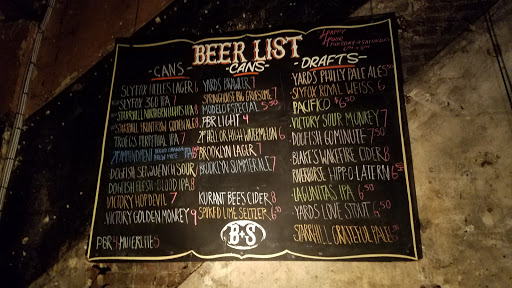 BEER LIST
HAPPY HOUR
-CANS-
SLYFOX HELLES LAGER 6
SLYFOX 360 IPA 7
STARRHILL NORTHERN LIGHTS IPA 8
STARRHILL FRONT ROW GOLDEN ALE 8
TROEGS PERPETUAL IPA 7
21ST AMENDMENT
DOGFISH SEAQUENCH SOUR
DOGFISH FLESH + BLOOD IPA 8
VICTORY HOPDEVIL 7
VICTORY GOLDEN MONKEY 9
PBR 4 MILLER LITE 5
-CANS-
YARDS BRAWLER 7
SPRINGHOUSE BIG GRUESOME 7
MODELO ESPECIAL 5.50
PBR LIGHT 4
21ST HELL OR HIGH WATERMELON 6
BROOKLYN LAGER 7
BROOKLYN SUMMER ALE 7
KURANT BEES CIDER 8
SPIKED LIME SELTZER 6.50
B+S
DRAFTS-
YARD'S PHILLY PALE ALE 5.50
SLYFOX ROYAL WEISS 6
PACIFICO 6.50
VICTORY SOUR MONKEY 7
DOGFISH 60 MINUTE 7.50
BLAKE'S WAKEFIRE CIDER 8
RIVERHORSE HIPPO LATERN 6.50
LAGUNITAS IPA 6.50
YARDS LOVE STOUT 6.50
STARRHILL GRATEFUL PALE